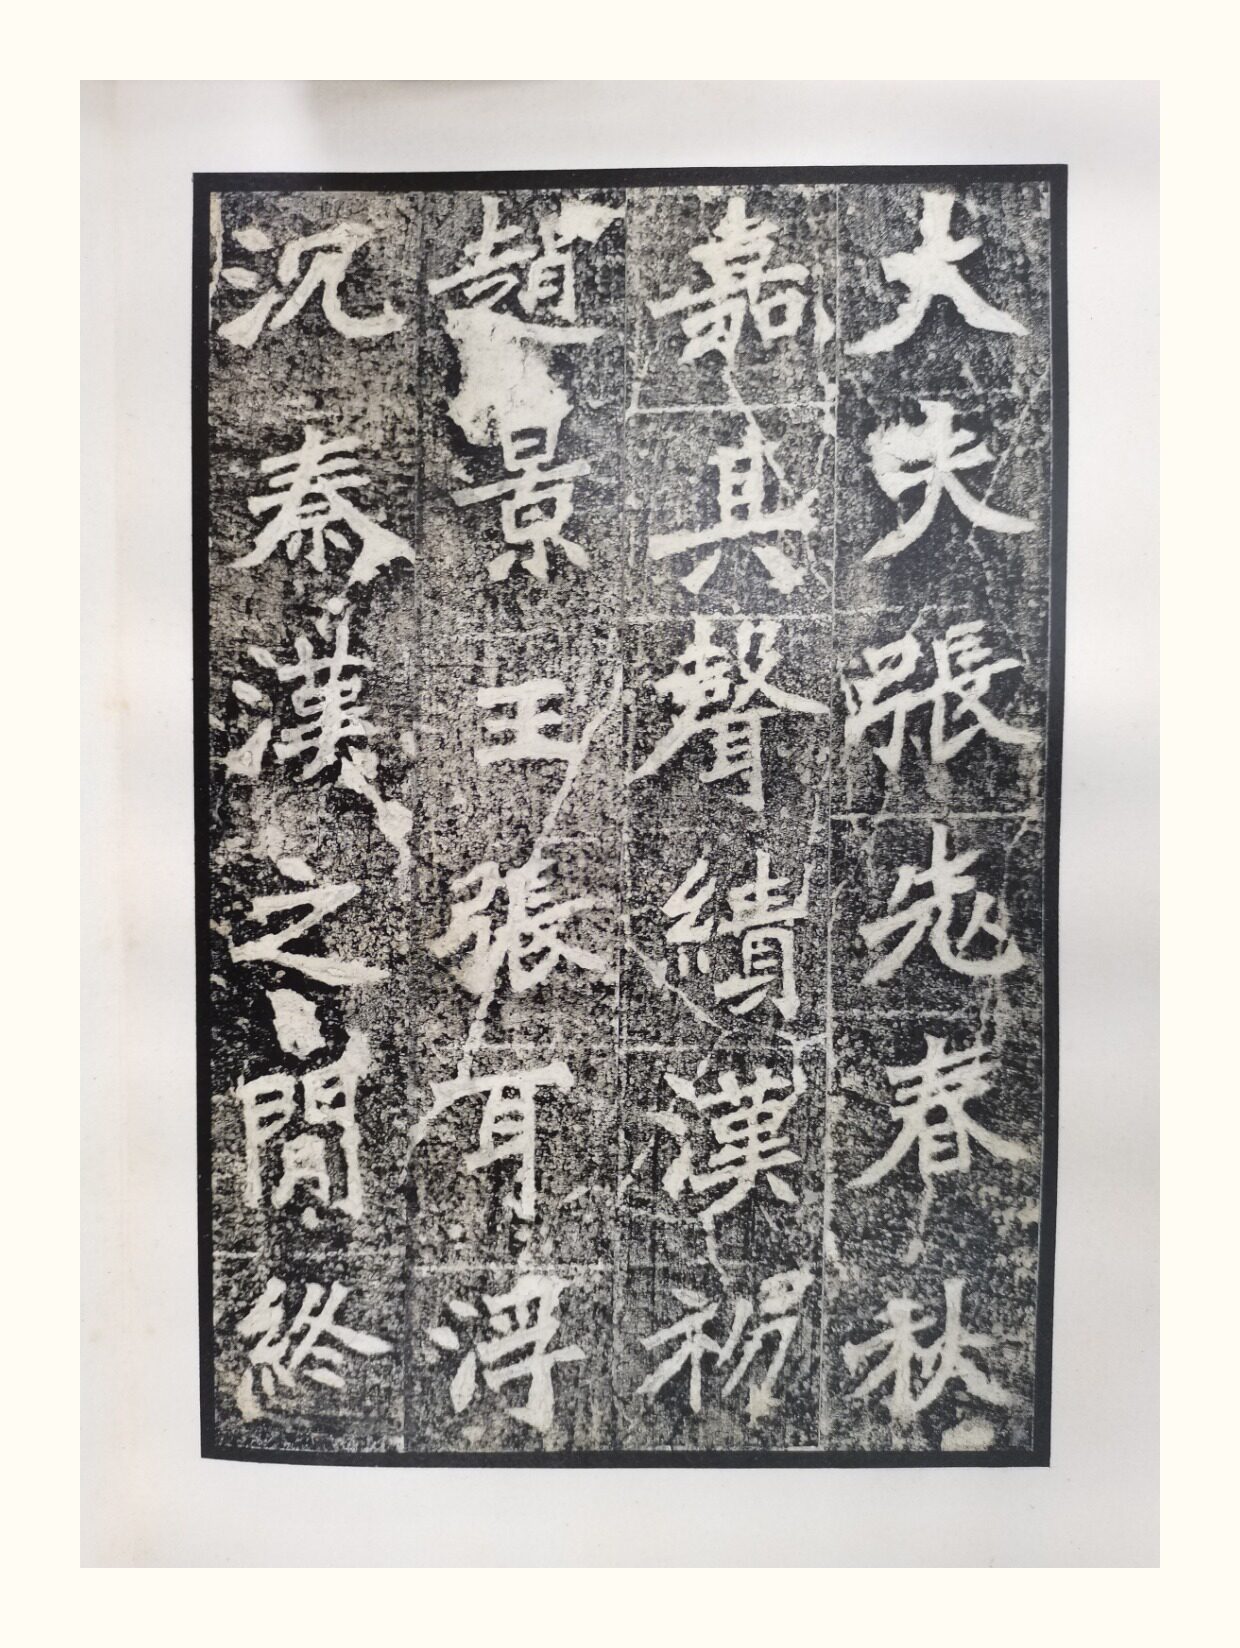 大夫張老春秋
嘉其聲績漢初
趙景王張耳浮
沉秦漢之間終